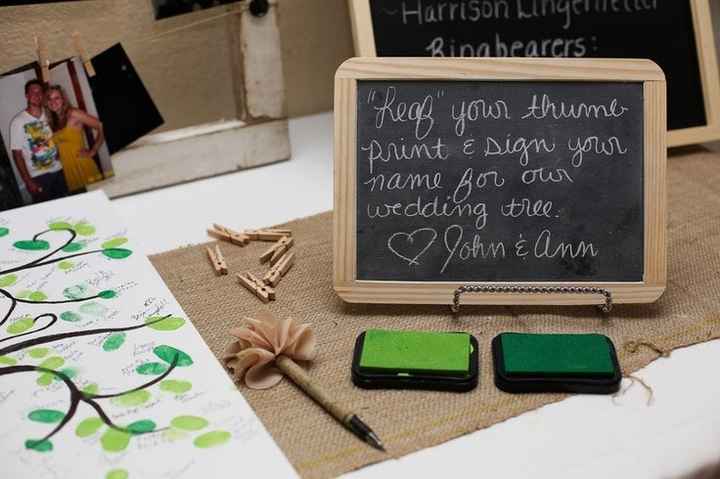 ~Harrison Lingenfelter
Ringbearers:
"Leaf" your thumb
print & sign your
name for our
wedding tree.
♡ John & Ann